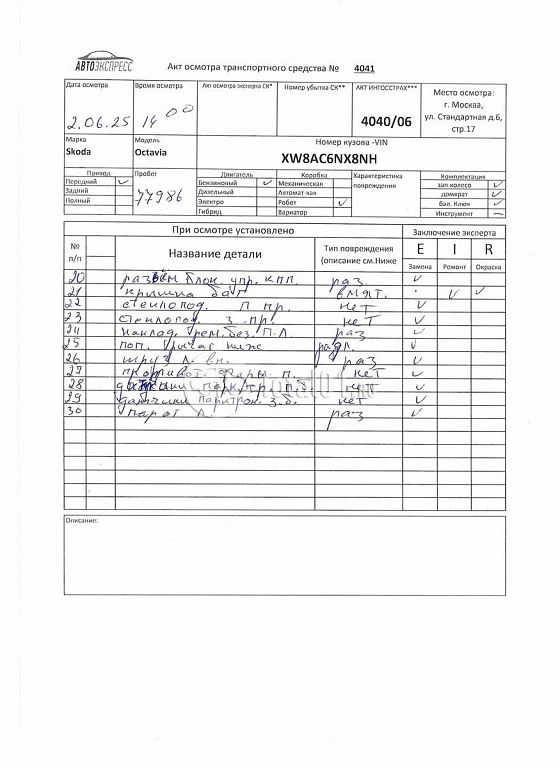 АВТОЭКСПРЕСС
Акт осмотра транспортного средства № 4041
Дата осмотра Время осмотра Акт осмотра эксперта СК* Номер убытка СК** АКТ ИНГОССТРАХ*** Место осмотра:
2.06.25 14 00 4040/06 г. Москва,
ул. Стандартная д.6,
стр.17
Марка Модель Номер кузова -VIN
Skoda Octavia XW8AC6NX8NH
Привод Пробег Двигатель Коробка Характеристика повреждения Комплектация
Передний ✓ 77986 Бензиновый ✓ Механическая зап.колесо ✓
Задний Дизельный Автомат-кая домкрат ✓
Полный Электро Робот ✓ бал. Ключ ✓
Гибрид Вариатор Инструмент —
При осмотре установлено Заключение эксперта
№ п/п Название детали Тип повреждения (описание см.Ниже E I R
Замена Ремонт Окраска
20 разъём блок. упр. КПП. раз ✓
21 крышка бат вмят. ✓ ✓
22 стеклопод. П пр. нет ✓
23 стеклопод. З пр. нет ✓
24 наклад. рем. без. П.Л раз ✓
25 поп. рычаг ниж ✓
26 шруз л. вн. раз ✓
27 фары п. нет ✓
28 датчики парктр. п. нет ✓
29 датчики парктрон. з.б. нет ✓
30 Л. раз ✓
Описание: